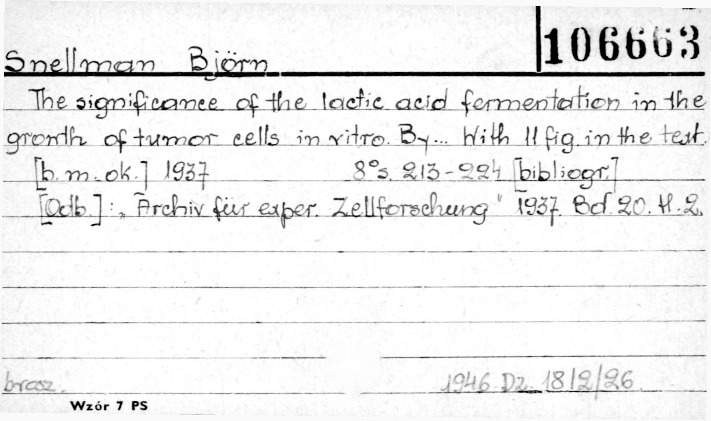 106663
Snellman Björn
The significance of the lactic acid fermentation in the
growth of tumor cells in vitro. By... With 11 fig. in the text.
[b. m. ok.] 1937 8° s. 213-224 [bibliogr.]
[Odb.]: „Archiv für exper. Zellforschung" 1937. Bd. 20. H. 2.
brosz. 1946 Dz. 18/2/26
Wzór 7 PS